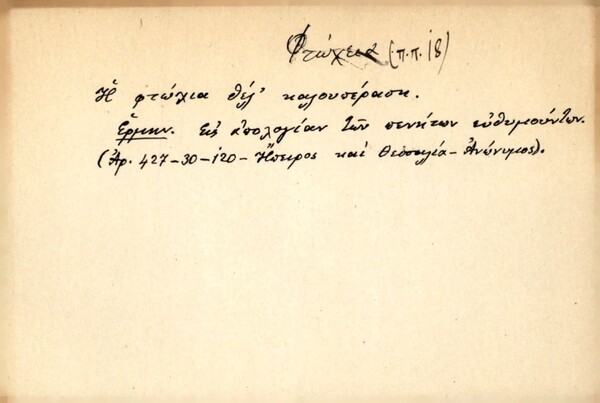 Φτώχεια (π.π. 18)
Ἡ φτώχια θέλ' καλουπέραση.
Ἑρμην. Εἰς ἀπολογίαν τῶν πενήτων εὐθυμούντων.
(Ἀρ. 427-30-120- Ἤπειρος καί Θεσσαλία- Ἀνώνυμος).